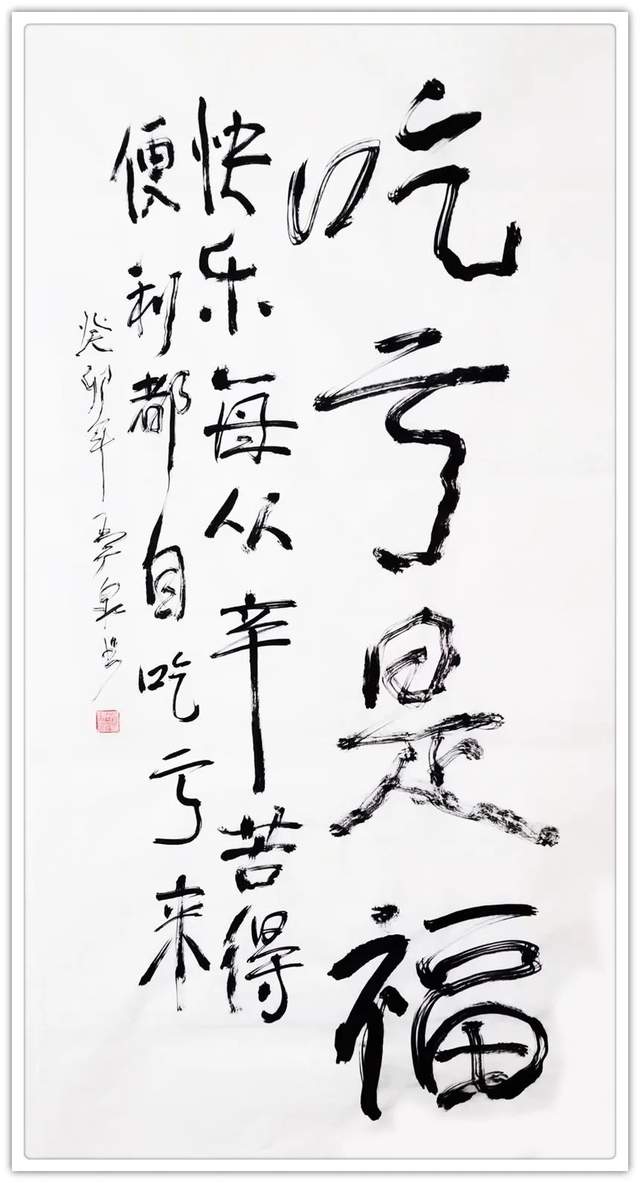 吃亏是福
快乐每从辛苦得
便利都自吃亏来
癸卯年